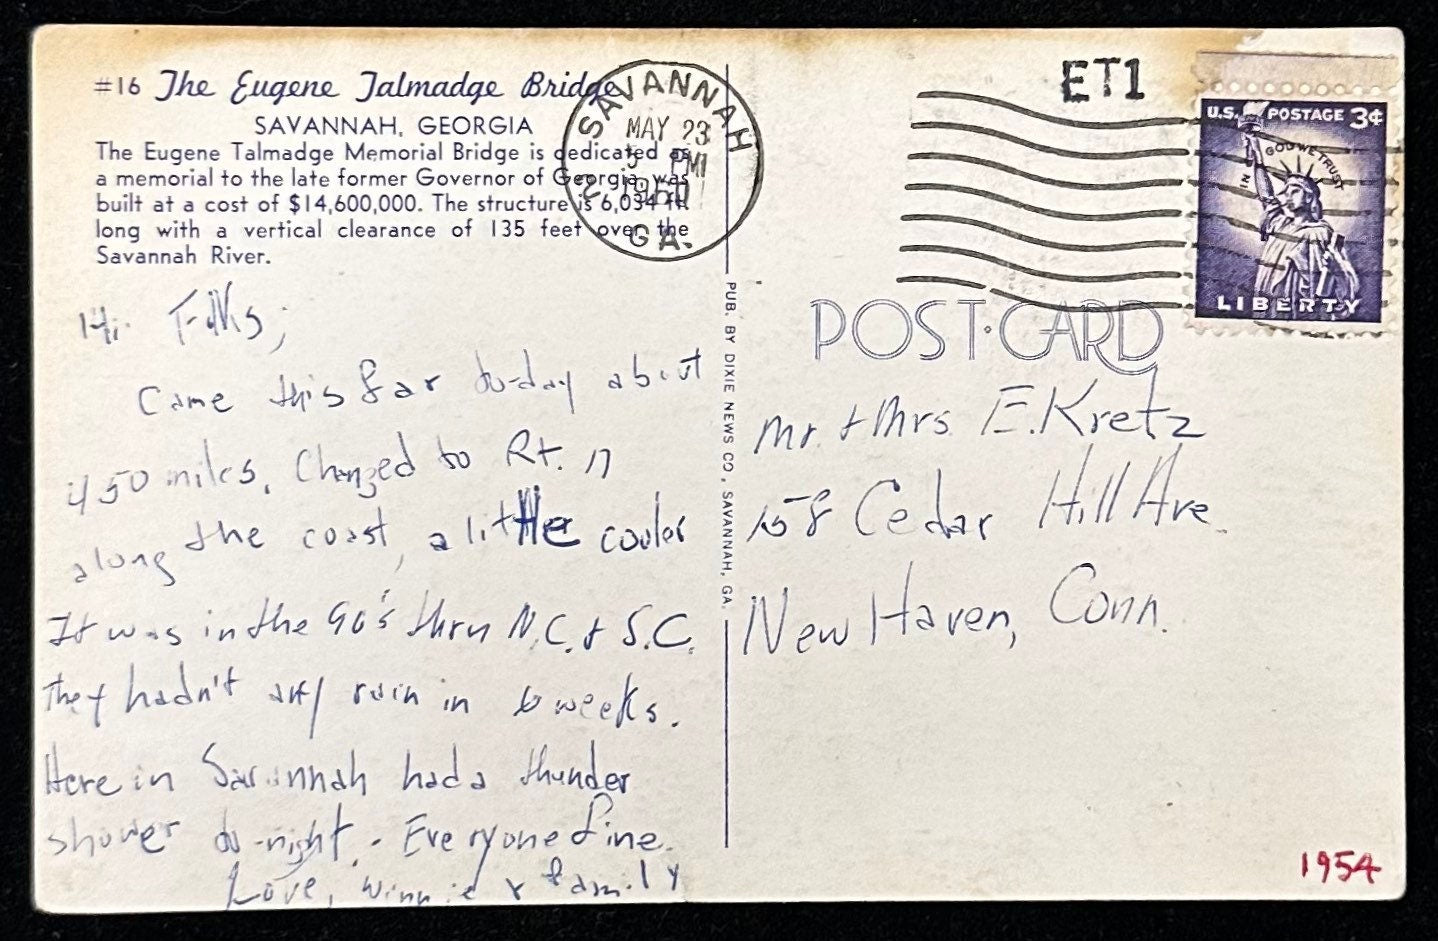 #16 The Eugene Talmadge Bridge
SAVANNAH, GEORGIA
The Eugene Talmadge Memorial Bridge is dedicated as
a memorial to the late former Governor of Georgia, was
built at a cost of $14,600,000. The structure is 6,034 ft.
long with a vertical clearance of 135 feet over the
Savannah River.
SAVANNAH
MAY 23
PM
GA.
ET1
U.S. POSTAGE 3¢
IN GOD WE TRUST
LIBERTY
Hi Folks;
Came this far to-day about
450 miles. Changed to Rt. 17
along the coast, a little cooler
It was in the 90's thru N.C. & S.C.
They hadn't any rain in 6 weeks.
Here in Savannah had a thunder
shower to-night. - Everyone fine.
Love, Winnie & family
PUB. BY DIXIE NEWS CO., SAVANNAH, GA.
POST-CARD
Mr. & Mrs. E. Kretz
158 Cedar Hill Ave.
New Haven, Conn.
1954